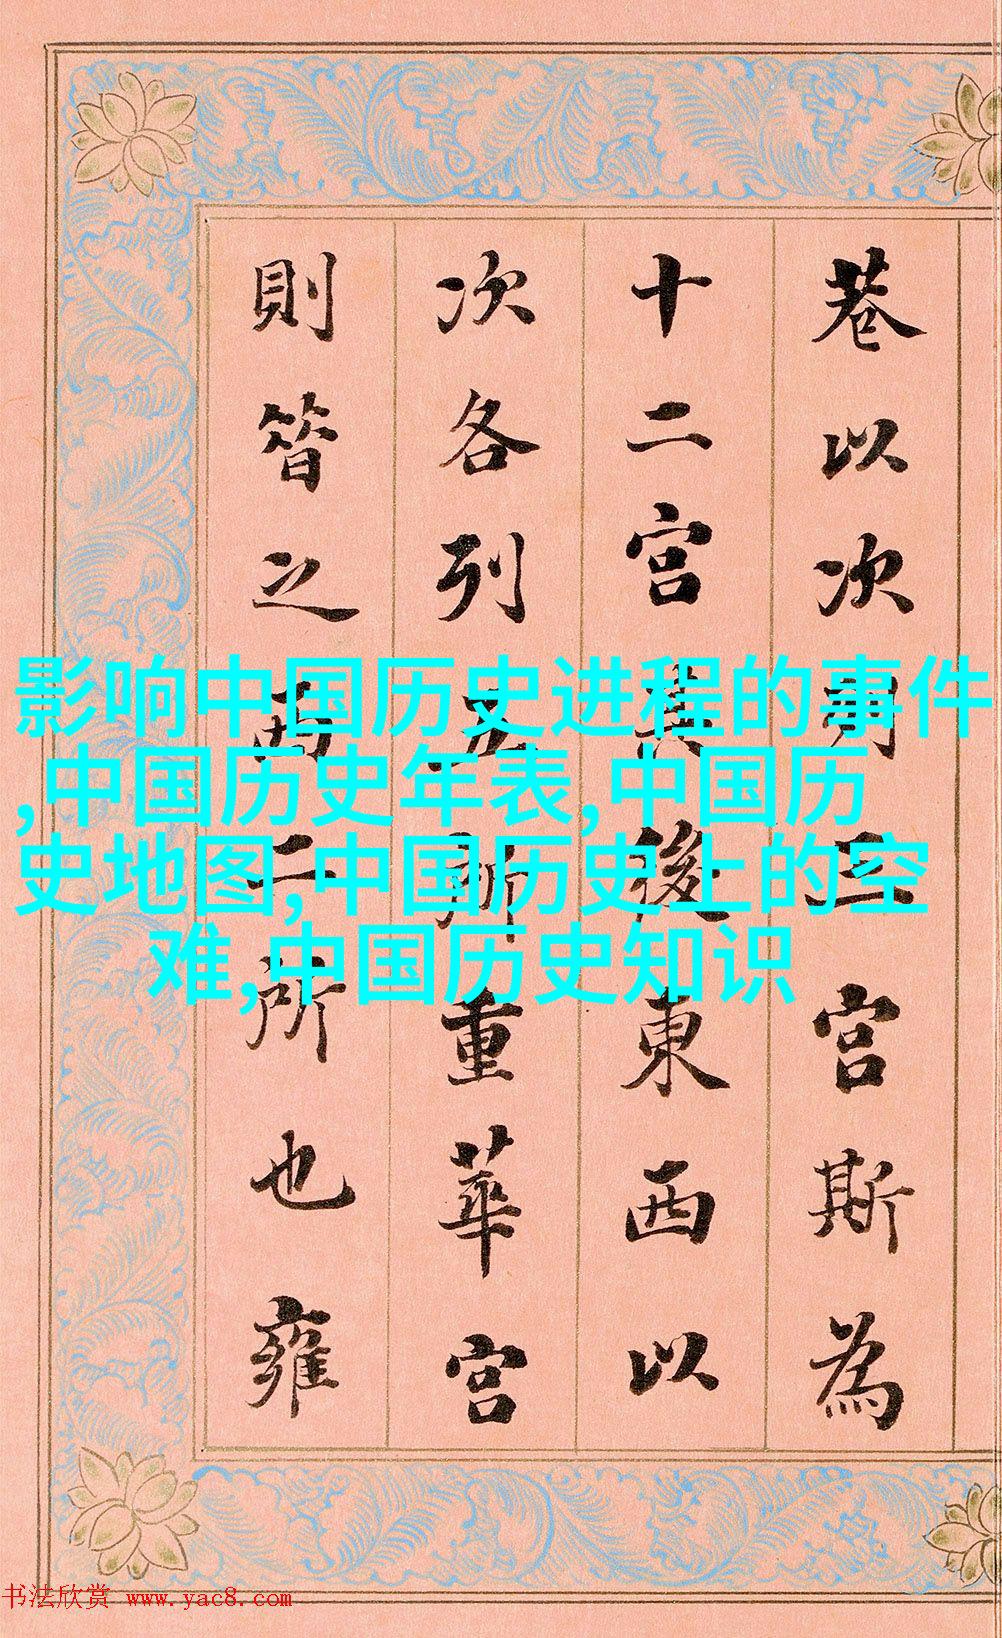 巷以次列三宮斯為
十二宮其後東西以
次各列五所重華宮
則昔之西二所也雍
影响中国历史进程的事件
,中国历史年表,中国历
史地图,中国历史上的空
难,中国历史知识
书法欣赏 www.yac8.com